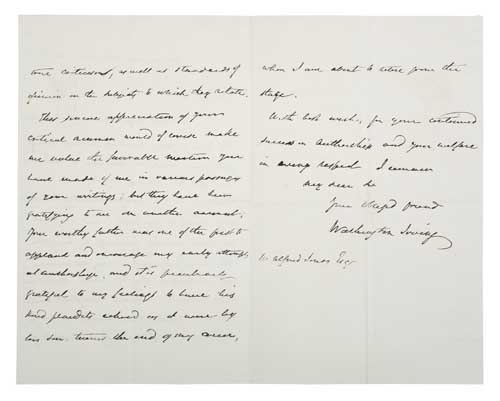 true criticism, as well as standards of
opinion on the subjects to which they relate.
This sincere appreciation of your
critical acumen would of course make
me value the favorable mention you
have made of me in various passages
of your writings; but they have been
gratifying to me on another account.
Your worthy father was one of the first to
applaud and encourage my early attempts
at authorship, and it is peculiarly
grateful to my feelings to have his
kind plaudits echoed as it were by
his son towards the end of my career,
when I am about to retire from the
stage.
With best wishes for your continued
success in authorship and your welfare
in every respect I remain
My dear Sir
Your obliged friend
Washington Irving
Wm Alfred Jones Esqr